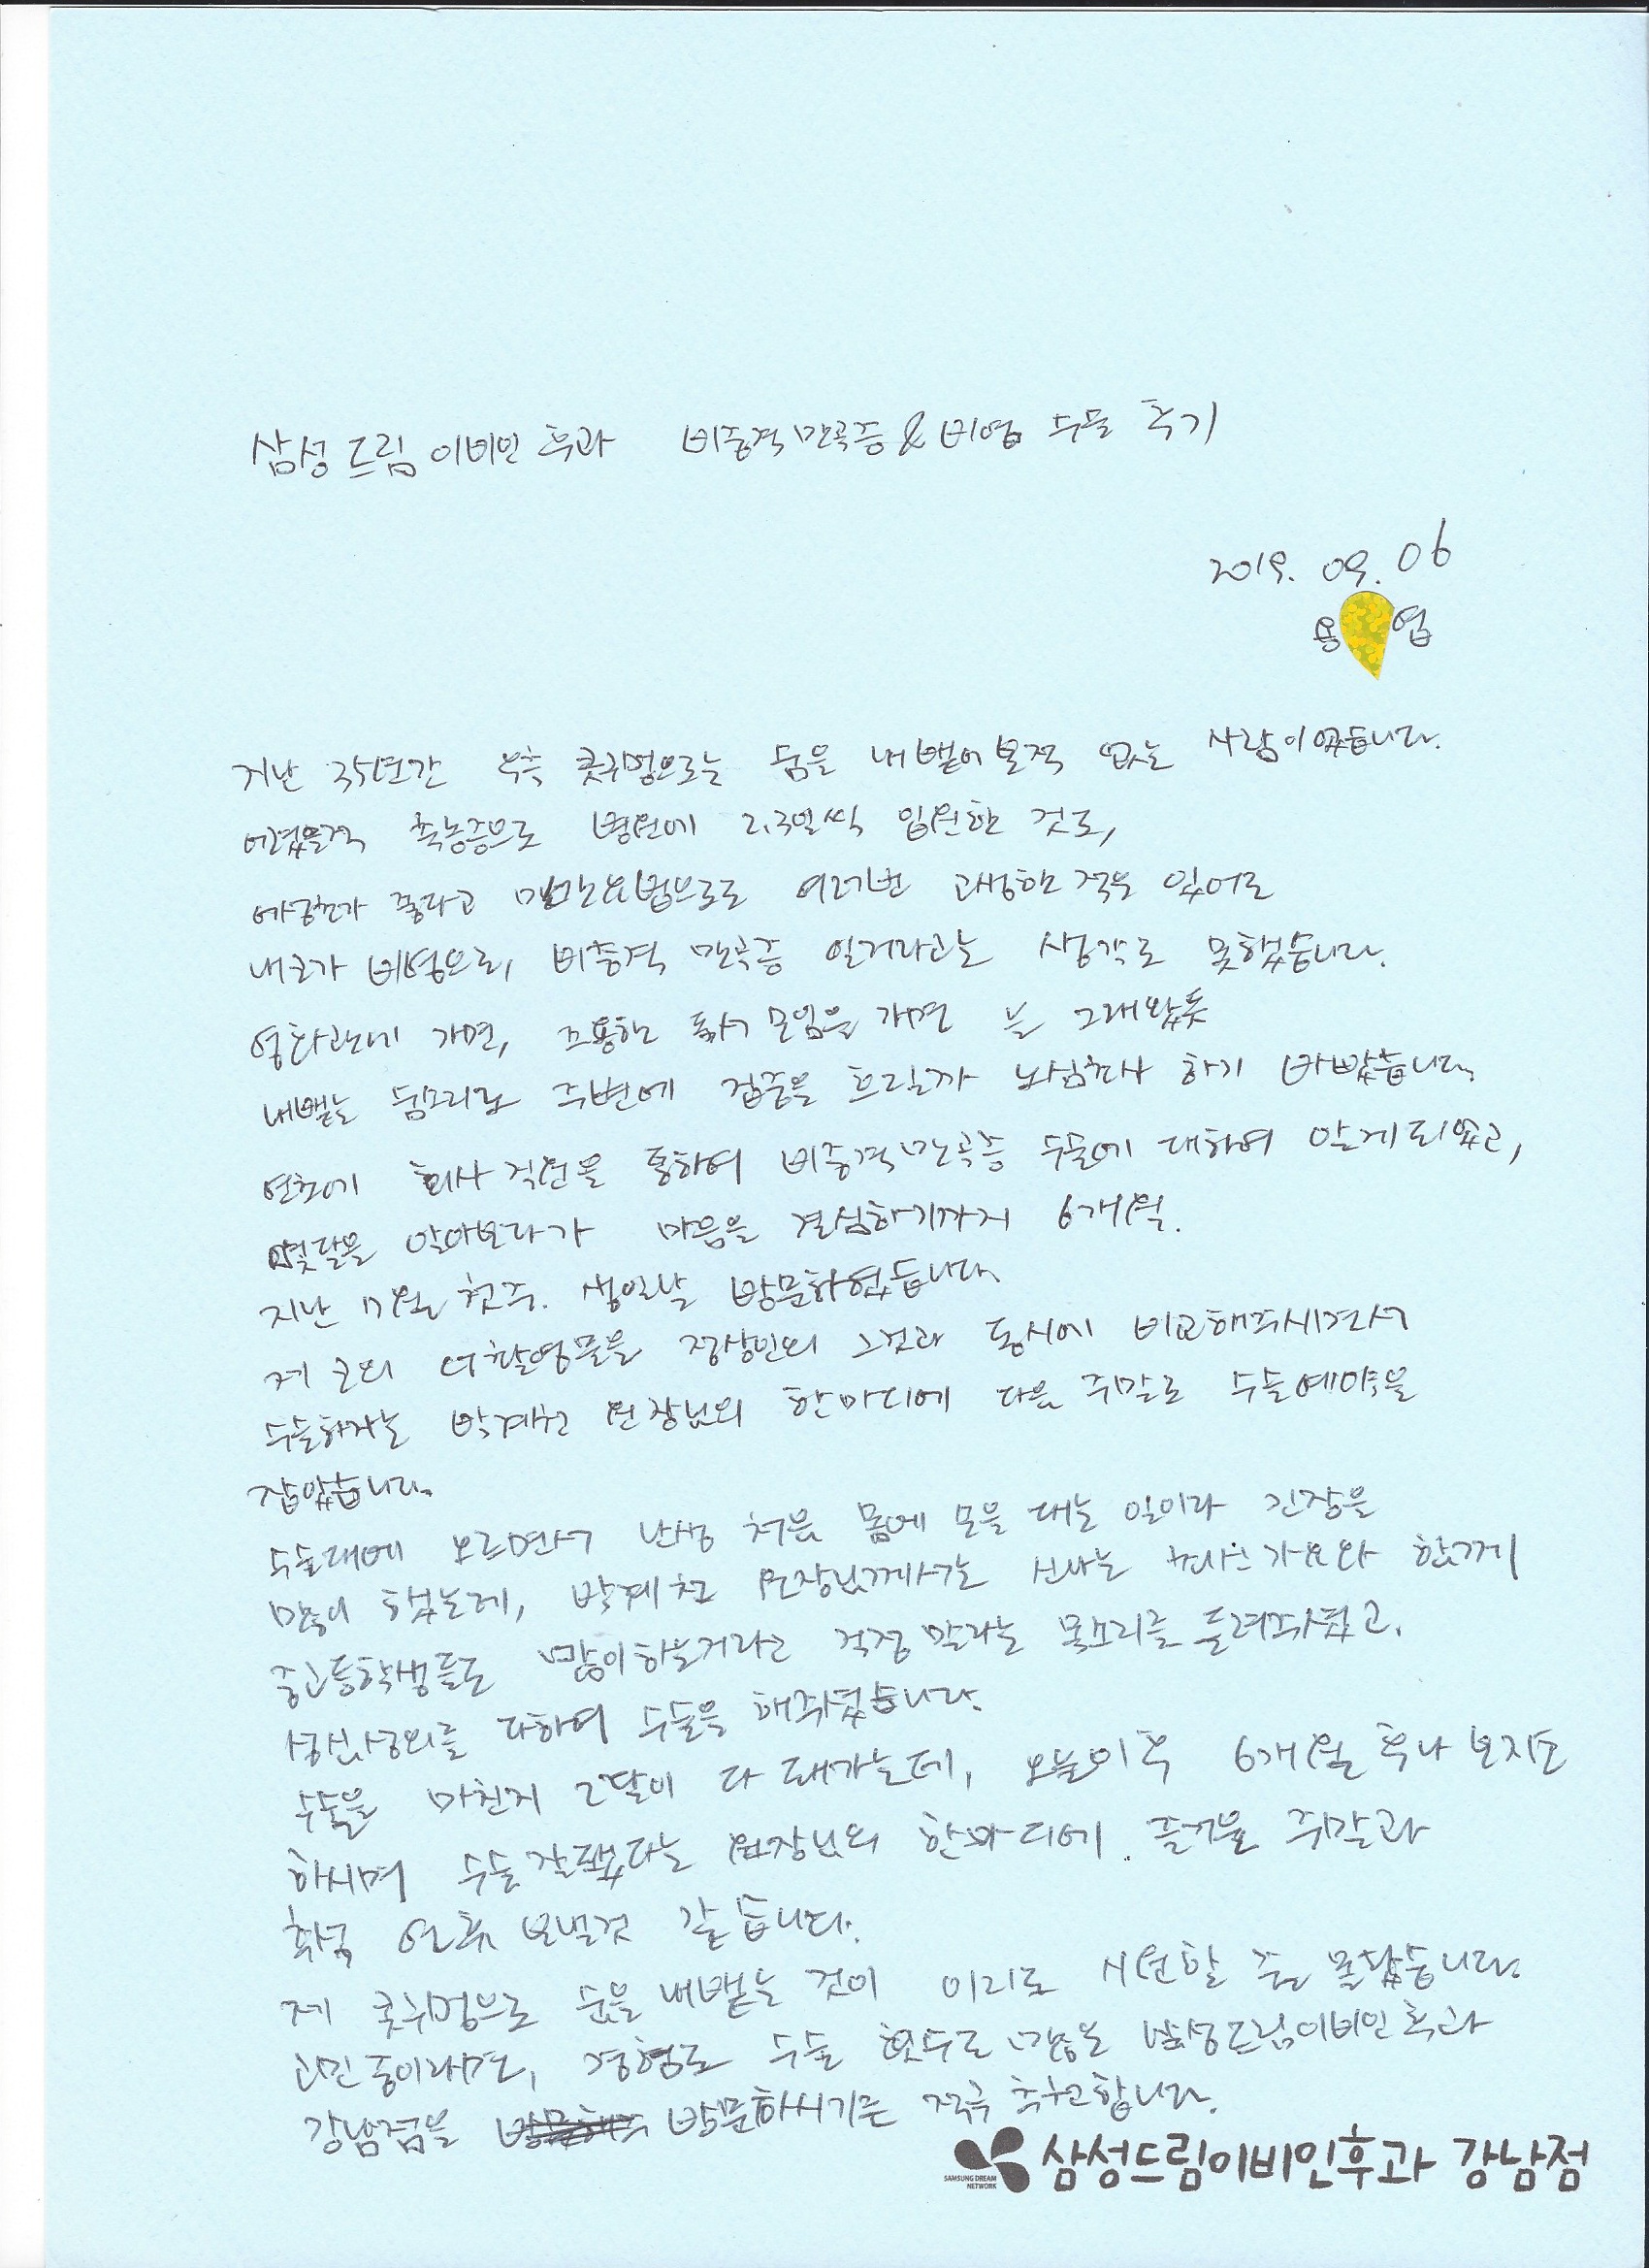 삼성드림이비인후과 비중격만곡증&비염 수술 후기
2019. 09. 06
용 엽
지난 35년간 우측 콧구멍으로는 숨을 내뱉어본적 없는 사람이었습니다.
어렸을적 축농증으로 병원에 2,3일씩 입원한 것도,
에 좋다고 민간요법으로도 여러번 고생한 적은 있어도
내코가 비염으로, 비중격 만곡증 일거라고는 생각도 못했습니다.
영화관에 가면, 조용한 독서 모임을 가면 늘 그래왔듯
내뱉는 숨소리로 주변에 집중을 흐릴까 노심초사 하기 바빴습니다.
연초에 회사 직원을 통하여 비중격만곡증 수술에 대하여 알게되었고,
몇달을 알아보다가 마음을 결심하기까지 6개월.
지난 7월 첫주. 생일날 방문하였습니다.
제 코의 촬영물을 정상인의 그것과 동시에 비교해주시면서
수술하자는 박계천 원장님의 한마디에 다음 주말로 수술예약을
잡았습니다.
수술대에 오르면서 난생 처음 몸에 모을 대는 일이라 긴장을
많이 했는데, 박계천 원장님께서는 신나는 가요와 함께
중고등학생들도 많이하는거라고 걱정 말라는 목소리를 들려주셨고,
성심성의를 다하여 수술을 해주셨습니다.
수술을 마친지 2달이 다 돼가는데, 오늘이후 6개월 후나 보자고
하시며 수술 잘됐다는 원장님의 한마디에 즐거운 주말과
추석 연휴 보낼것 같습니다.
제 콧구멍으로 숨을 내뱉는 것이 이리도 시원할 줄 몰랐습니다.
고민 중이라면, 경험도 수술 횟수도 많은 삼성드림이비인후과
강남점을 방문하시기를 적극 추천합니다.
SAMSUNG DREAM NETWORK
삼성드림이비인후과 강남점